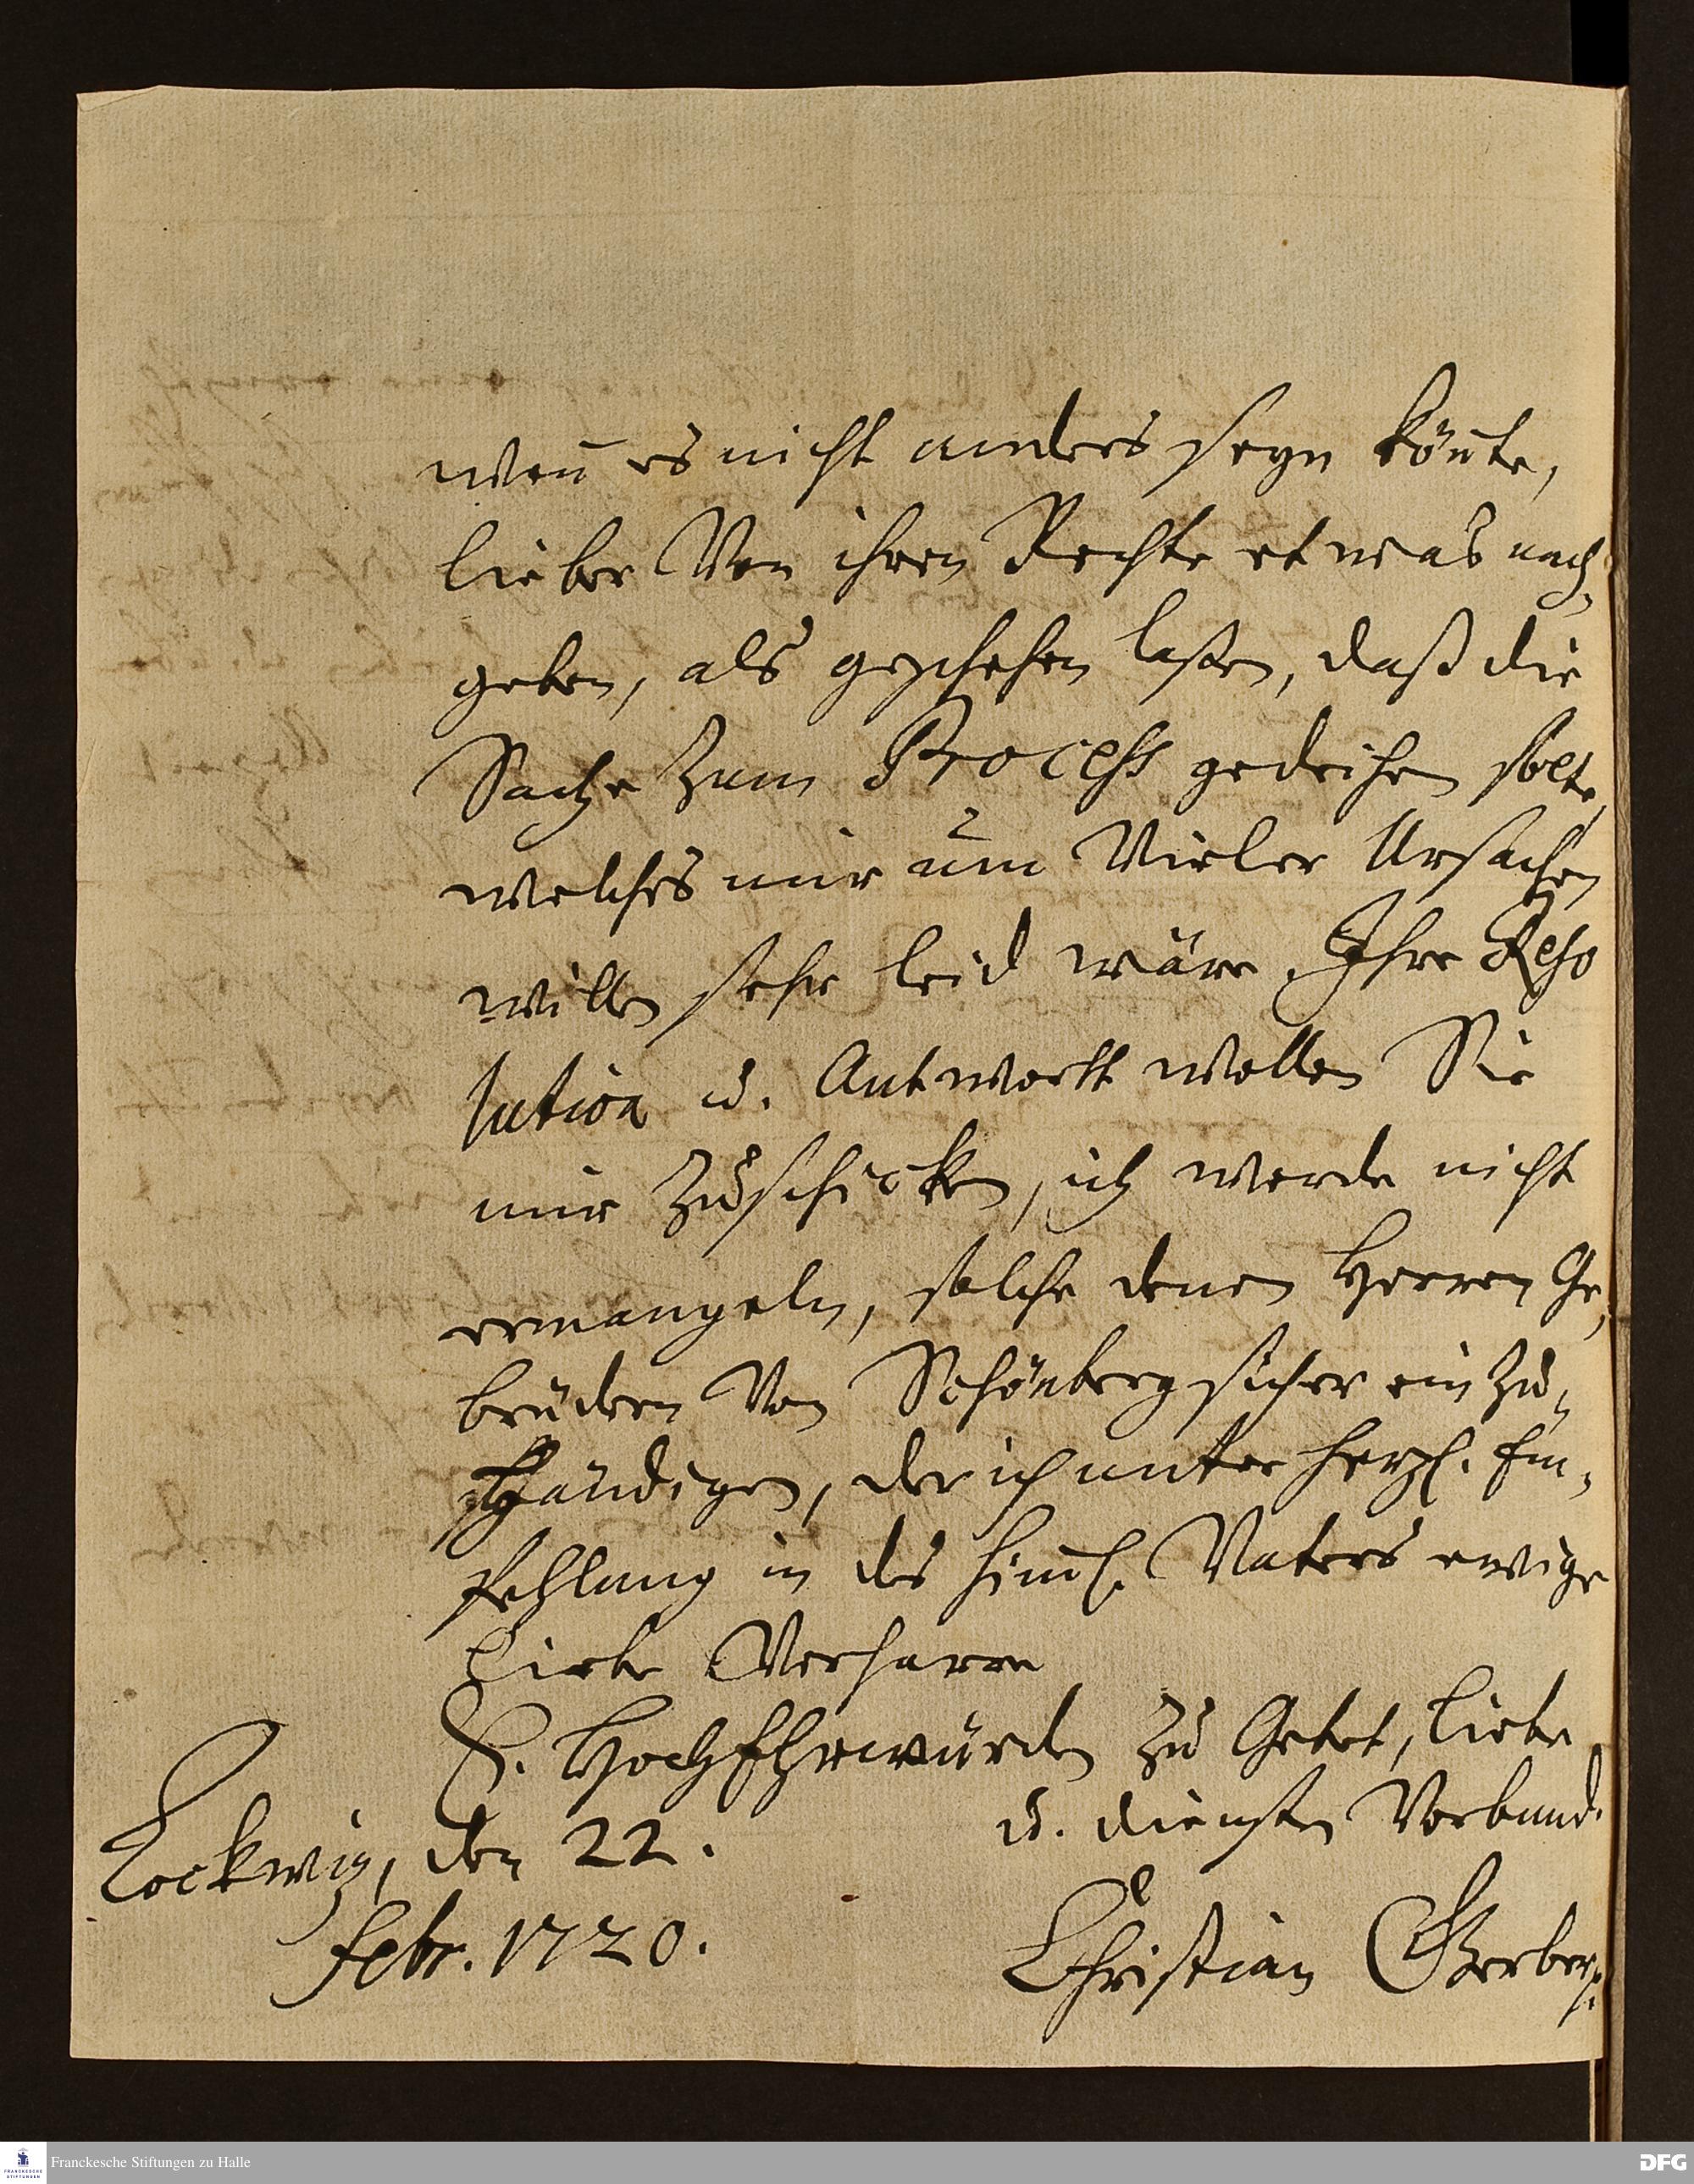 weñ es nicht anders seyn köñte,
lieber Von ihren Rechte etwas nach-
geben, als geschehen laßen, daß die
Sache zum Process gedeihen solte,
welches mir um Vieler Ursachen
willen sehr leid wäre. Ihre Reso
lution u. Antwortt wollen Sie
mir zuschicken, ich werde nicht
ermangeln, solche denen Herren Ge-
brüdern Von Schönberg sicher ein zu-
händigen, der ich unter hertzl. Em-
pfehlung in des him̃l. Vaters ewige
Liebe Verharre
E. HochEhrwürden zu Gebet, Liebe
u. diensten Verbund.
Lockwiz, den 22.
Febr. 1720.
Christian Gerber
Franckesche Stiftungen zu Halle
FRANCKESCHE STIFTUNGEN
DFG